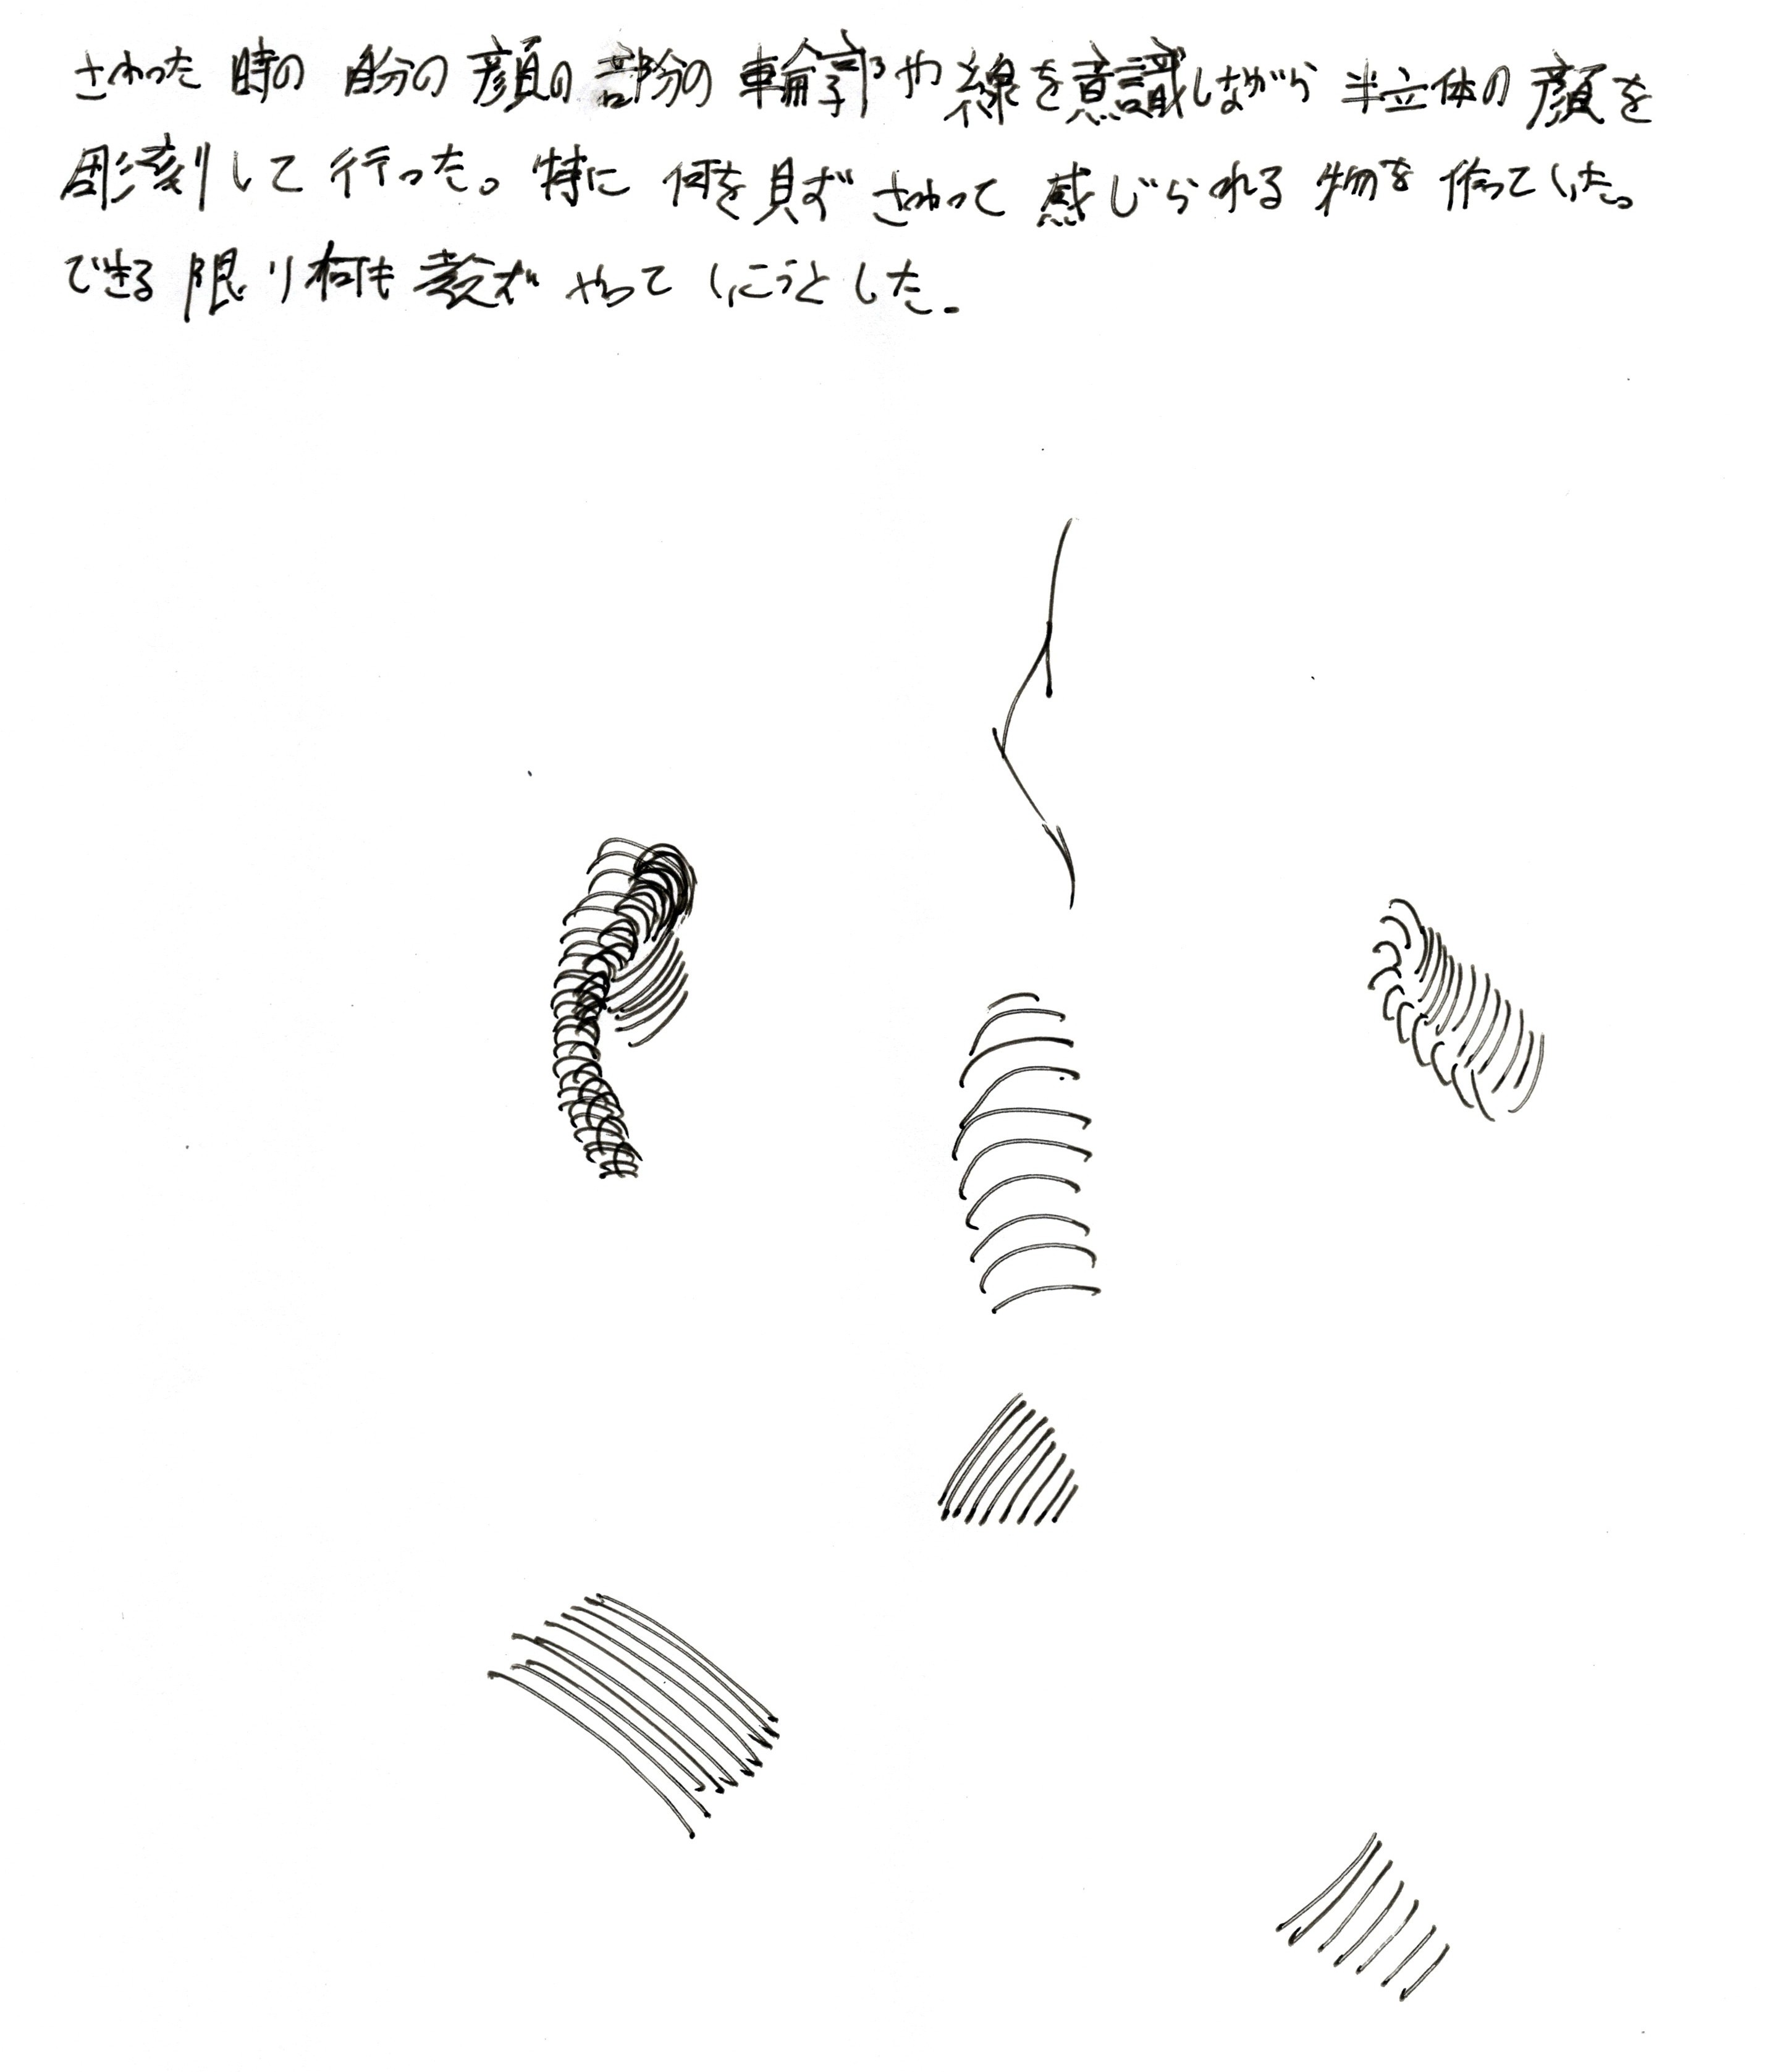 さわった時の自分の顔の部分の輪郭や線を意識しながら半立体の顔を
彫刻して行った。特に何を見ずさわって感じられる物を作っていた。
できる限り何も考えずやっていこうとした.